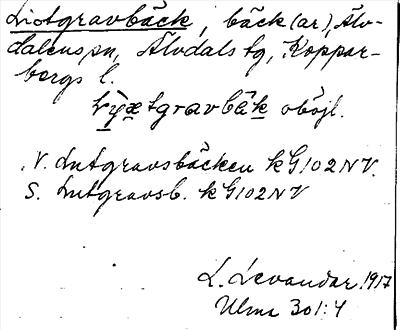 Liotgravbäck, bäck(ar), Älv-
dalens sn, Älvdals tg, Koppar-
bergs l.
obòjl.
N. Lutgravsbäcken kG102NV.
S. Lutgravsb. kG102NV
L. Levander 1917
Ulma 301:4